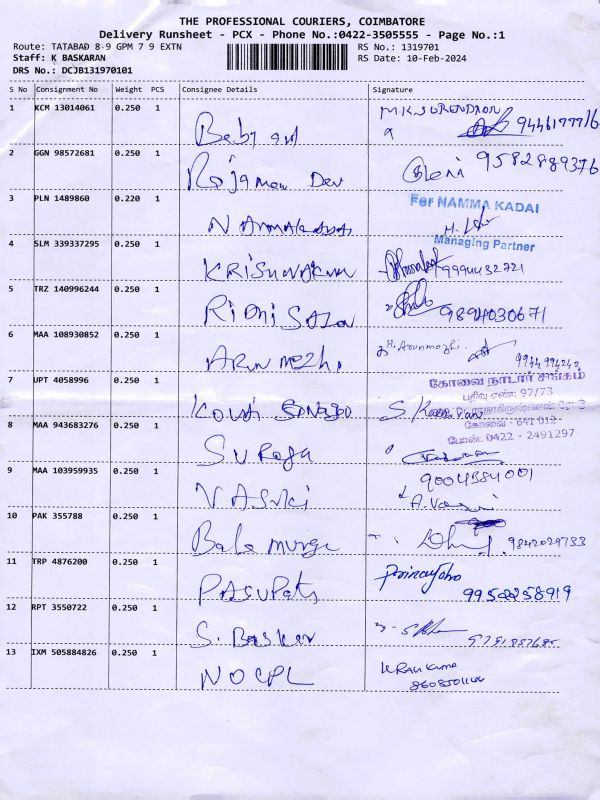 THE PROFESSIONAL COURIERS, COIMBATORE
Delivery Runsheet - PCX - Phone No.:0422-3505555 - Page No.:1
Route: TATABAD 8-9 GPM 7 9 EXTN RS No.: 1319701
Staff: K BASKARAN RS Date: 10-Feb-2024
DRS No.: DCJB131970101
S No Consignment No Weight PCS Consignee Details Signature
1 KCM 13014061 0.250 1 M.K.SURENDRAN
Baby 9446177716
2 GGN 98572681 0.250 1 9582889376
Rajaman Dev
3 PLN 1489860 0.220 1 For NAMMA KADAI
Managing Partner
4 SLM 339337295 0.250 1
KRISHNAKUM 9994432721
5 TRZ 140996244 0.250 1
9894030671
6 MAA 108930852 0.250 1 H. Arunmozhi
ARUN mozhi 9944994242
7 UPT 4058996 0.250 1 கோவை நாடார் சங்கம்
பதிவு எண்: 97/73
கோவை - 641 012.
போன்: 0422 - 2491297
8 MAA 943683276 0.250 1
Suraja
9 MAA 103959935 0.250 1 9004384001
VASUKI
10 PAK 355788 0.250 1
Bala muruga 9842029733
11 TRP 4876200 0.250 1
PASUPATI
12 RPT 3550722 0.250 1
S. BASKAR
13 IXM 505884826 0.250 1 K RAVI KUMAR
NOCPL